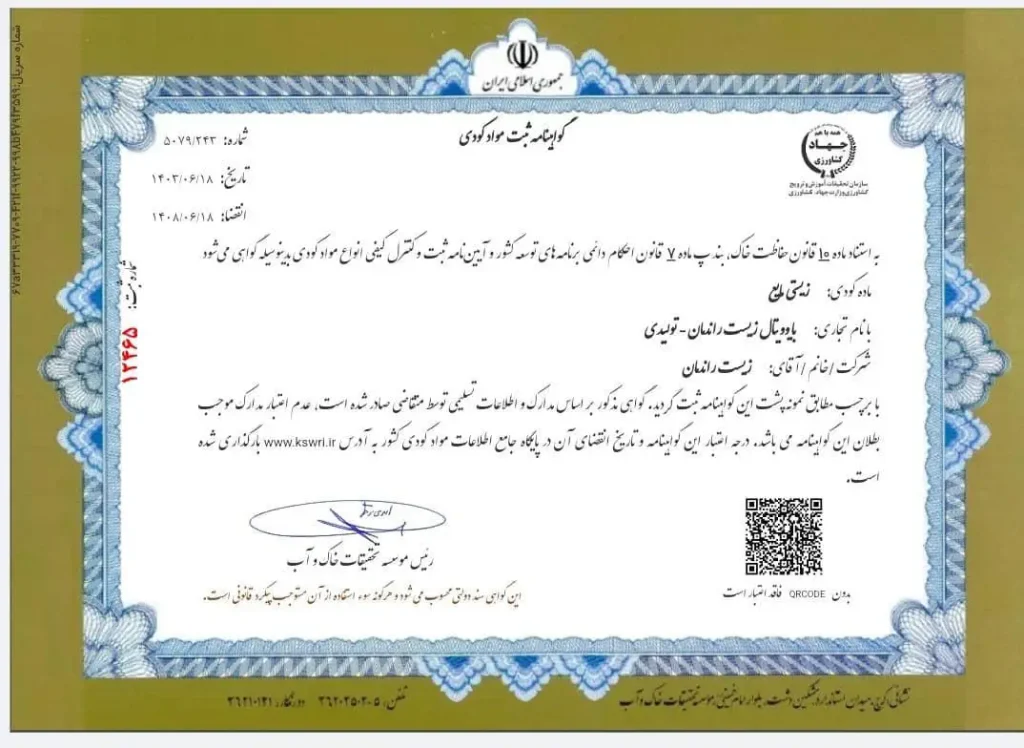 جمهوری اسلامی ایران
گواهینامه ثبت مواد کودی
همه با هم
جهاد
کشاورزی
سازمان تحقیقات، آموزش و ترویج
کشاورزی وزارت جهاد کشاورزی
شماره: ۵۰۷۹/۲۴۳
تاریخ: ۱۴۰۳/۰۶/۱۸
انقضا: ۱۴۰۸/۰۶/۱۸
به استناد ماده ۱۰ قانون حفاظت خاک، بند پ ماده ۷ قانون احکام دائمی برنامه های توسعه کشور و آیین‌نامه ثبت و کنترل کیفی انواع مواد کودی بدینوسیله گواهی می‌شود
ماده کودی: زیستی مایع
با نام تجاری: بایوویتال زیست راندمان - تولیدی
شرکت / خانم / آقای: زیست راندمان
با برچسب مطابق نمونه پشت این گواهینامه ثبت گردید. گواهی مذکور بر اساس مدارک و اطلاعات تسلیمی توسط متقاضی صادر شده است، عدم اعتبار مدارک موجب
بطلان این گواهینامه می باشد. درجه اعتبار این گواهینامه و تاریخ انقضای آن در پایگاه جامع اطلاعات مواد کودی کشور به آدرس www.kswri.ir بارگذاری شده
است.
شماره ثبت: ۱۲۴۶۵
رئیس موسسه تحقیقات خاک و آب
این گواهی سند دولتی محسوب می شود و هرگونه سوء استفاده از آن مستوجب پیگرد قانونی است.
بدون QRCODE فاقد اعتبار است
نشانی: کرج، میدان استاندارد، مشکین دشت، بلوار امام خمینی، موسسه تحقیقات خاک و آب
تلفن: ۵-۳۶۲۰۲۵۰۲ دورنگار: ۳۶۲۱۰۱۲۱
شماره سریال: